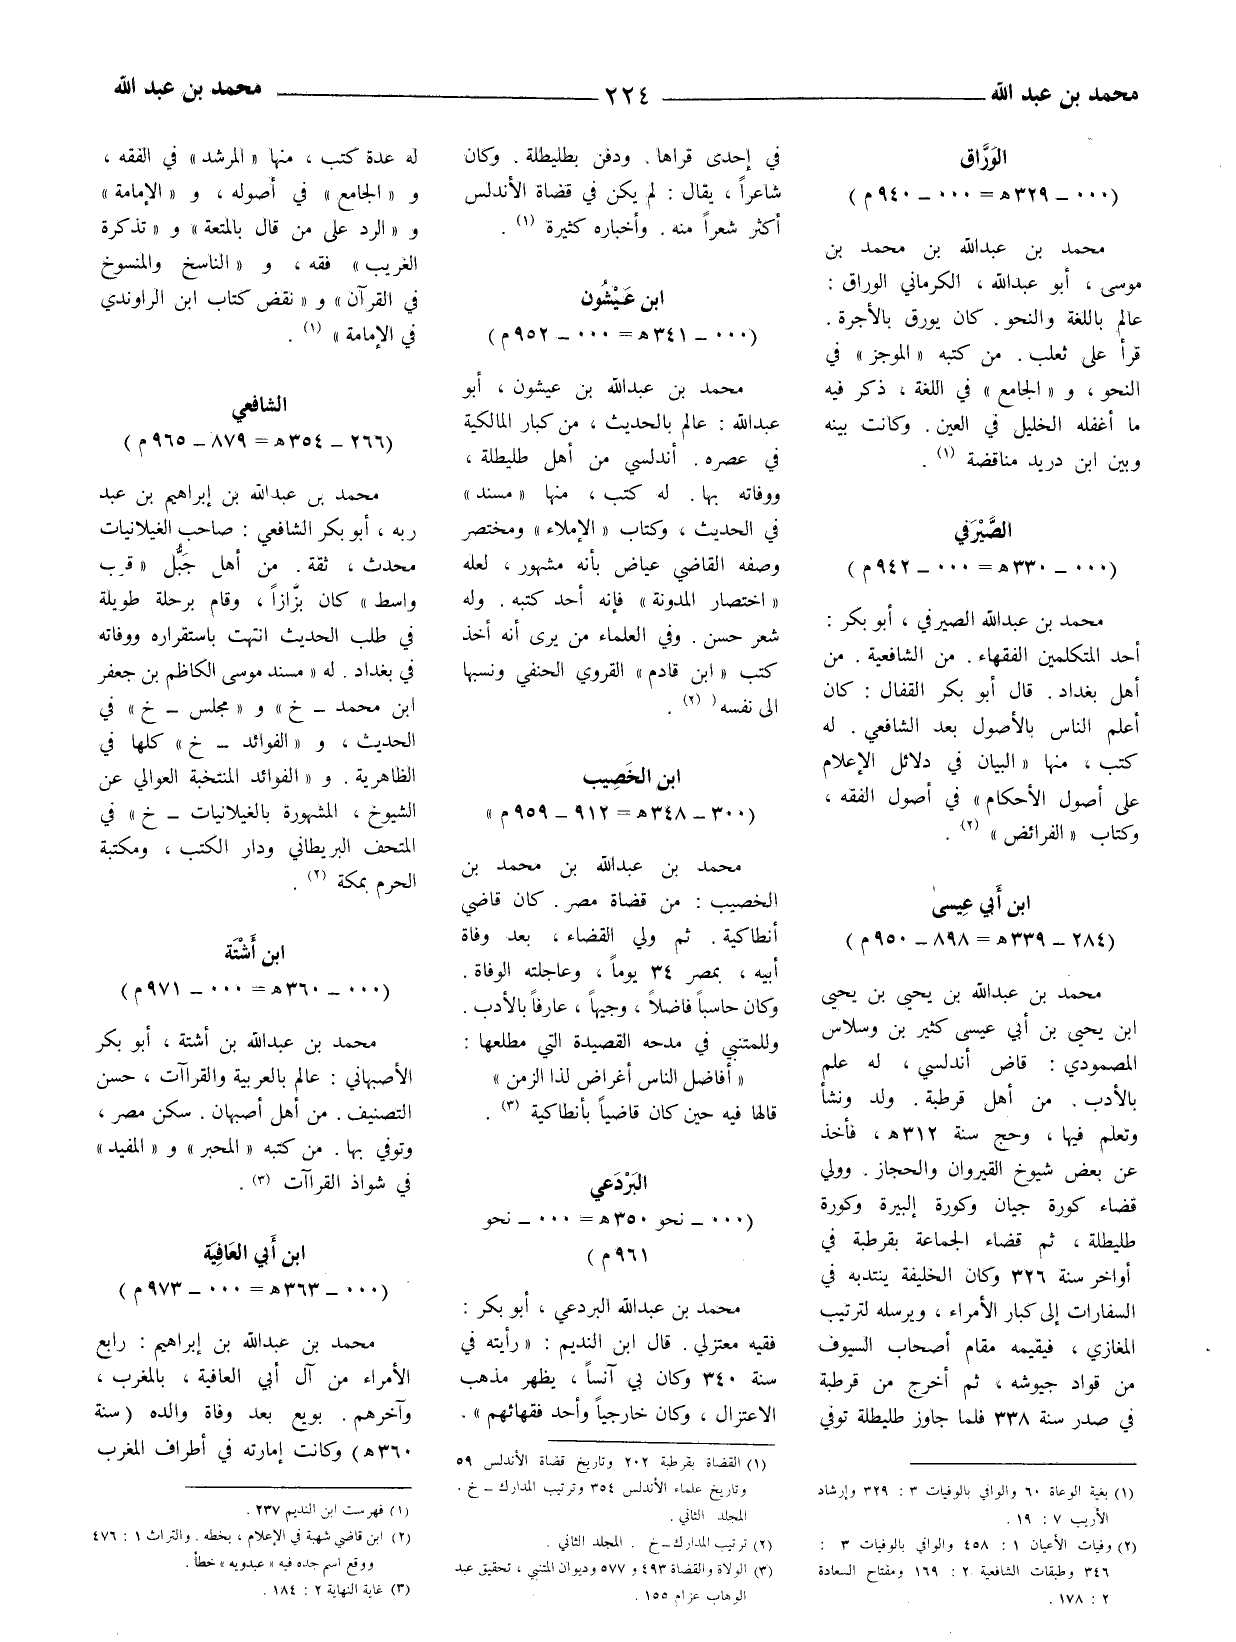 محمد بن عبد الله ـــــ ٢٢٤ ـــــ محمد بن عبد الله
الوَرَّاق
(٠٠٠ ــ ٣٢٩ هـ = ٠٠٠ ــ ٩٤٠ م)
محمد بن عبدالله بن محمد بن
موسى ، أبو عبدالله ، الكرماني الوراق :
عالم باللغة والنحو. كان يورق بالأجرة.
قرأ على ثعلب. من كتبه «الموجز» في
النحو ، و «الجامع» في اللغة ، ذكر فيه
ما أغفله الخليل في العين. وكانت بينه
وبين ابن دريد مناقضة (١) .
الصَّيْرَفي
(٠٠٠ ــ ٣٣٠ هـ = ٠٠٠ ــ ٩٤٢ م)
محمد بن عبدالله الصيرفي ، أبو بكر :
أحد المتكلمين الفقهاء. من الشافعية. من
أهل بغداد. قال أبو بكر القفال : كان
أعلم الناس بالأصول بعد الشافعي. له
كتب ، منها «البيان في دلائل الإعلام
على أصول الأحكام» في أصول الفقه ،
وكتاب «الفرائض» (٢) .
ابن أَبي عِيسىٰ
(٢٨٤ ــ ٣٣٩ هـ = ٨٩٨ ــ ٩٥٠ م)
محمد بن عبدالله بن يحيى بن يحيى
ابن يحيى بن أبي عيسى كثير بن وسلاس
المصمودي : قاض أندلسي ، له علم
بالأدب. من أهل قرطبة. ولد ونشأ
وتعلم فيها ، وحج سنة ٣١٢ هـ ، فأخذ
عن بعض شيوخ القيروان والحجاز. وولي
قضاء كورة جيان وكورة إلبيرة وكورة
طليطلة ، ثم قضاء الجماعة بقرطبة في
أواخر سنة ٣٢٦ وكان الخليفة ينتدبه في
السفارات إلى كبار الأمراء ، ويرسله لترتيب
المغازي ، فيقيمه مقام أصحاب السيوف
من قواد جيوشه ، ثم أخرج من قرطبة
في صدر سنة ٣٣٨ فلما جاوز طليطلة توفي
(١) بغية الوعاة ٦٠ والوافي بالوفيات ٣ : ٣٢٩ وإرشاد
الأريب ٧ : ١٩ .
(٢) وفيات الأعيان ١ : ٤٥٨ والوافي بالوفيات ٣ :
٣٤٦ وطبقات الشافعية ٢ : ١٦٩ ومفتاح السعادة
٢ : ١٧٨ .
في إحدى قراها. ودفن بطليطلة. وكان
شاعراً ، يقال : لم يكن في قضاة الأندلس
أكثر شعراً منه. وأخباره كثيرة (١) .
ابن عَيْشُون
(٠٠٠ ــ ٣٤١ هـ = ٠٠٠ ــ ٩٥٢ م)
محمد بن عبدالله بن عيشون ، أبو
عبدالله : عالم بالحديث ، من كبار المالكية
في عصره. أندلسي من أهل طليطلة ،
ووفاته بها. له كتب ، منها «مسند»
في الحديث ، وكتاب «الإملاء» ومختصر
وصفه القاضي عياض بأنه مشهور ، لعله
«اختصار المدونة» فإنه أحد كتبه. وله
شعر حسن. وفي العلماء من يرى أنه أخذ
كتب «ابن قادم» القروي الحنفي ونسبها
الى نفسه (٢) .
ابن الخَصِيب
(٣٠٠ ــ ٣٤٨ هـ = ٩١٢ ــ ٩٥٩ م»
محمد بن عبدالله بن محمد بن
الخصيب : من قضاة مصر. كان قاضي
أنطاكية. ثم ولي القضاء ، بعد وفاة
أبيه ، بمصر ٣٤ يوماً ، وعاجلته الوفاة.
وكان حاسباً فاضلاً ، وجيهاً ، عارفاً بالأدب.
وللمتنبي في مدحه القصيدة التي مطلعها :
«أفاضل الناس أغراض لذا الزمن»
قالها فيه حين كان قاضياً بأنطاكية (٣) .
البَرْدَعي
(٠٠٠ ــ نحو ٣٥٠ هـ = ٠٠٠ ــ نحو
٩٦١ م)
محمد بن عبدالله البردعي ، أبو بكر :
فقيه معتزلي. قال ابن النديم : «رأيته في
سنة ٣٤٠ وكان بي آنساً ، يظهر مذهب
الاعتزال ، وكان خارجياً وأحد فقهائهم».
(١) القضاة بقرطبة ٢٠٢ وتاريخ قضاة الأندلس ٥٩
وتاريخ علماء الأندلس ٣٥٤ وترتيب المدارك ــ خ .
المجلد الثاني .
(٢) ترتيب المدارك ــ خ . المجلد الثاني .
(٣) الولاة والقضاة ٤٩٣ و ٥٧٧ وديوان المتنبي ، تحقيق عبد
الوهاب عزام ١٥٥ .
له عدة كتب ، منها «المرشد» في الفقه ،
و «الجامع» في أصوله ، و «الإمامة»
و «الرد على من قال بالمتعة» و «تذكرة
الغريب» فقه ، و «الناسخ والمنسوخ
في القرآن» و «نقض كتاب ابن الراوندي
في الإمامة» (١) .
الشافعي
(٢٦٦ ــ ٣٥٤ هـ = ٨٧٩ ــ ٩٦٥ م)
محمد بن عبدالله بن إبراهيم بن عبد
ربه ، أبو بكر الشافعي : صاحب الغيلانيات
محدث ، ثقة. من أهل جَبُّل «قرب
واسط» كان بزَّازاً ، وقام برحلة طويلة
في طلب الحديث انتهت باستقراره ووفاته
في بغداد. له «مسند موسى الكاظم بن جعفر
ابن محمد ــ خ» و «مجلس ــ خ» في
الحديث ، و «الفوائد ــ خ» كلها في
الظاهرية. و «الفوائد المنتخبة العوالي عن
الشيوخ ، المشهورة بالغيلانيات ــ خ» في
المتحف البريطاني ودار الكتب ، ومكتبة
الحرم بمكة (٢) .
ابن أَشْتَة
(٠٠٠ ــ ٣٦٠ هـ = ٠٠٠ ــ ٩٧١ م)
محمد بن عبدالله بن أشتة ، أبو بكر
الأصبهاني : عالم بالعربية والقراآت ، حسن
التصنيف. من أهل أصبهان. سكن مصر ،
وتوفي بها. من كتبه «المحبر» و «المفيد»
في شواذ القراآت (٣) .
ابن أَبي العَافِيَة
(٠٠٠ ــ ٣٦٣ هـ = ٠٠٠ ــ ٩٧٣ م)
محمد بن عبدالله بن إبراهيم : رابع
الأمراء من آل أبي العافية ، بالمغرب ،
وآخرهم. بويع بعد وفاة والده (سنة
٣٦٠ هـ) وكانت إمارته في أطراف المغرب
(١) فهرست ابن النديم ٢٣٧ .
(٢) ابن قاضي شهبة في الإعلام ، بخطه . والتراث ١ : ٤٧٦
ووقع اسم جده فيه «عبدويه» خطأ .
(٣) غاية النهاية ٢ : ١٨٤ .